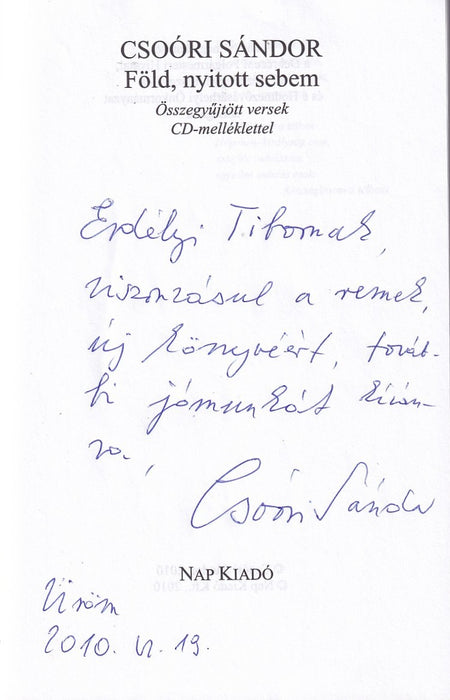 CSOÓRI SÁNDOR
Föld, nyitott sebem
Összegyűjtött versek
CD-melléklettel
Erdélyi Tibornak,
viszonzásul a remek,
új könyvéért, továb-
bi jómunkát kíván-
va,
Csoóri Sándor
NAP KIADÓ
Üröm
2010. VI. 19.